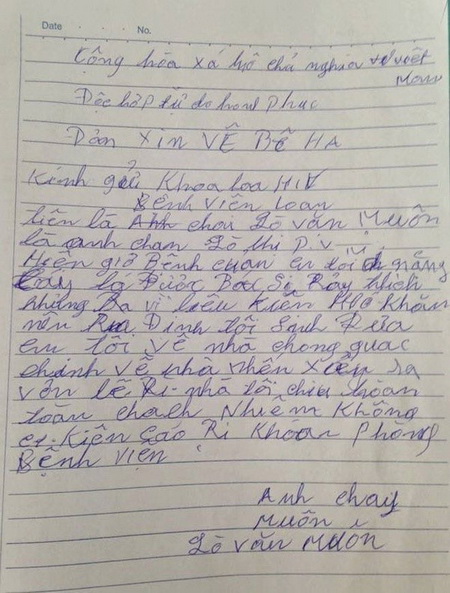 Date No.
Cộng hòa xá hộ chủ nghĩa việt
Nam
Độc lập tự do hanh phuc
Đản xin VỀ BỀ HA
Kính gửi Khoa loa HIV
Bệnh Viên Loan
liên là Anh chai Lò văn Muôn
là anh chan Lò thi
Hiện giờ Bệnh cuan en tôi nằng
lá Được Bac Si Ray thich
nhưng Ba vì liêu Kiến Khăn
nên Đinh tôi Sinh Đưa
em tôi về nhà chong quac
chinh về nhà nhên ra
vốn lề Ri nhà tôi chiu hoan
toan chach Nhiêm không
Kiên Cáo Ri Khoan phòng
Bệnh viện
Anh chay
muôn
Lò văn muôn